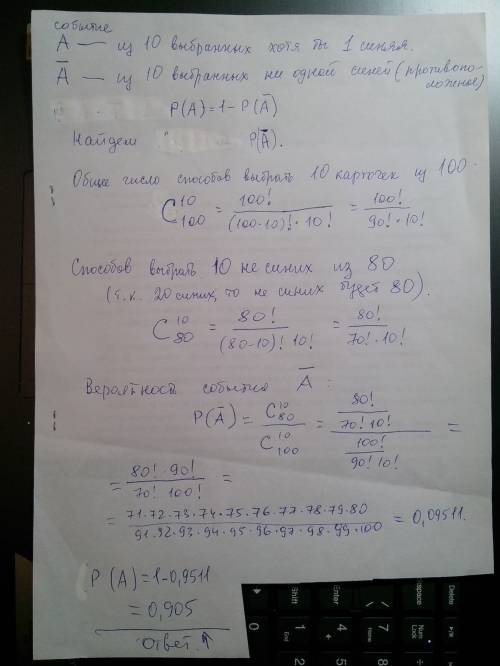 событие
A — из 10 выбранных хотя бы 1 синяя.
Ā — из 10 выбранных ни одной синей (противопо-
ложное)
P(A) = 1 - P(Ā)
Найдем P(Ā).
Общее число способов выбрать 10 карточек из 100.
C¹⁰₁₀₀ = 100! / ((100-10)! · 10!) = 100! / (90! · 10!)
Способов выбрать 10 не синих из 80
(т.к. 20 синих, то не синих будет 80).
C¹⁰₈₀ = 80! / ((80-10)! 10!) = 80! / (70! · 10!)
Вероятность события Ā :
P(Ā) = C¹⁰₈₀ / C¹⁰₁₀₀ = (80! / (70! 10!)) / (100! / (90! 10!)) =
= (80! · 90!) / (70! 100!) =
= (71·72·73·74·75·76·77·78·79·80) / (91·92·93·94·95·96·97·98·99·100) = 0,09511.
P(A) = 1 - 0,9511
= 0,905
ответ ↑
Shift
Ctrl
End
Num
Lock
Delete
0
1
4
5
7
8